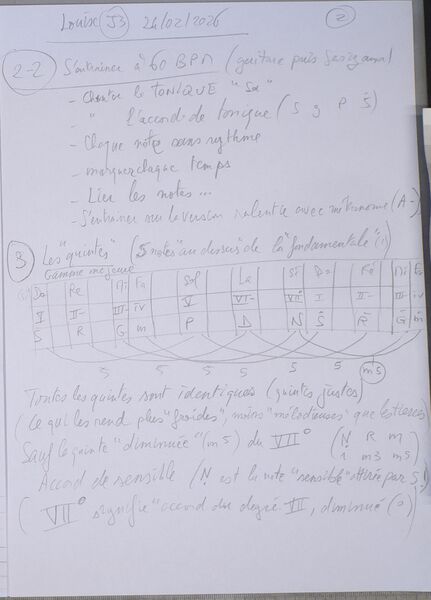 Louise J3 24/02/2026 2
2-2 S'entraîner à 60 BPM (guitare puis
- Chanter le TONIQUE "Sa"
- " l'accord de tonique (S g P Ṡ)
- Chaque note sans rythme
- marquer chaque temps
- Lier les notes...
- S'entraîner sur la version ralentie avec métronome (A-)
3 Les "quintes" (5 notes au dessus de la "fondamentale" (1)
Gamme majeure
Do Re Mi Fa Sol La Si Do Ré Mi Fa
I II- III- IV V VI- VII° I II- III- IV
S R G m P D N Ṡ Ṙ Ġ ṁ
5 5 5 5 5 5 m5
Toutes les quintes sont identiques (quintes justes)
(Ce qui les rend plus "froides", moins "mélodieuses" que les tierces
Sauf le quinte "diminuée" (m5) du VII° (N R m
1 m3 m5)
Accord de sensible (N est la note "sensible" attirée par Ṡ!)
(VII° signifie "accord du degré VII, diminué (°))